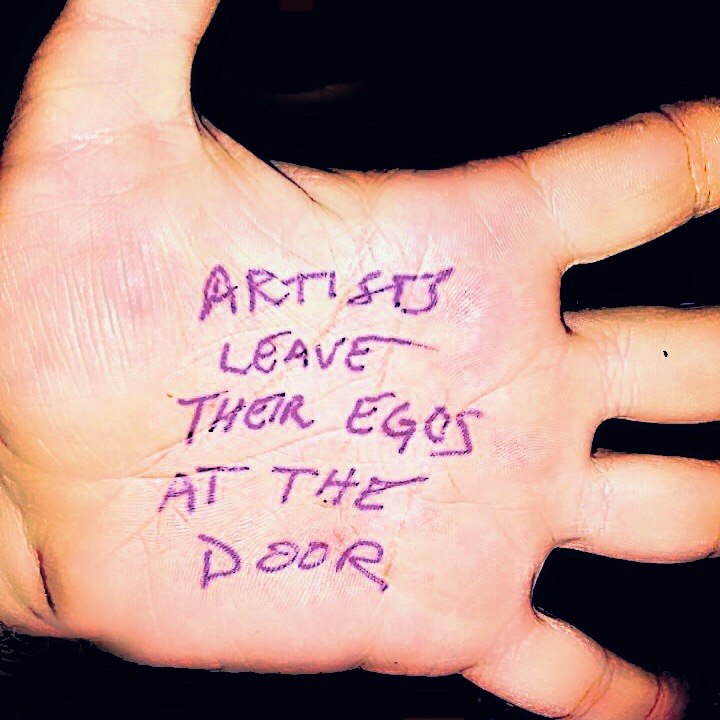 ARTISTS
LEAVE
THEIR EGOS
AT THE
DOOR